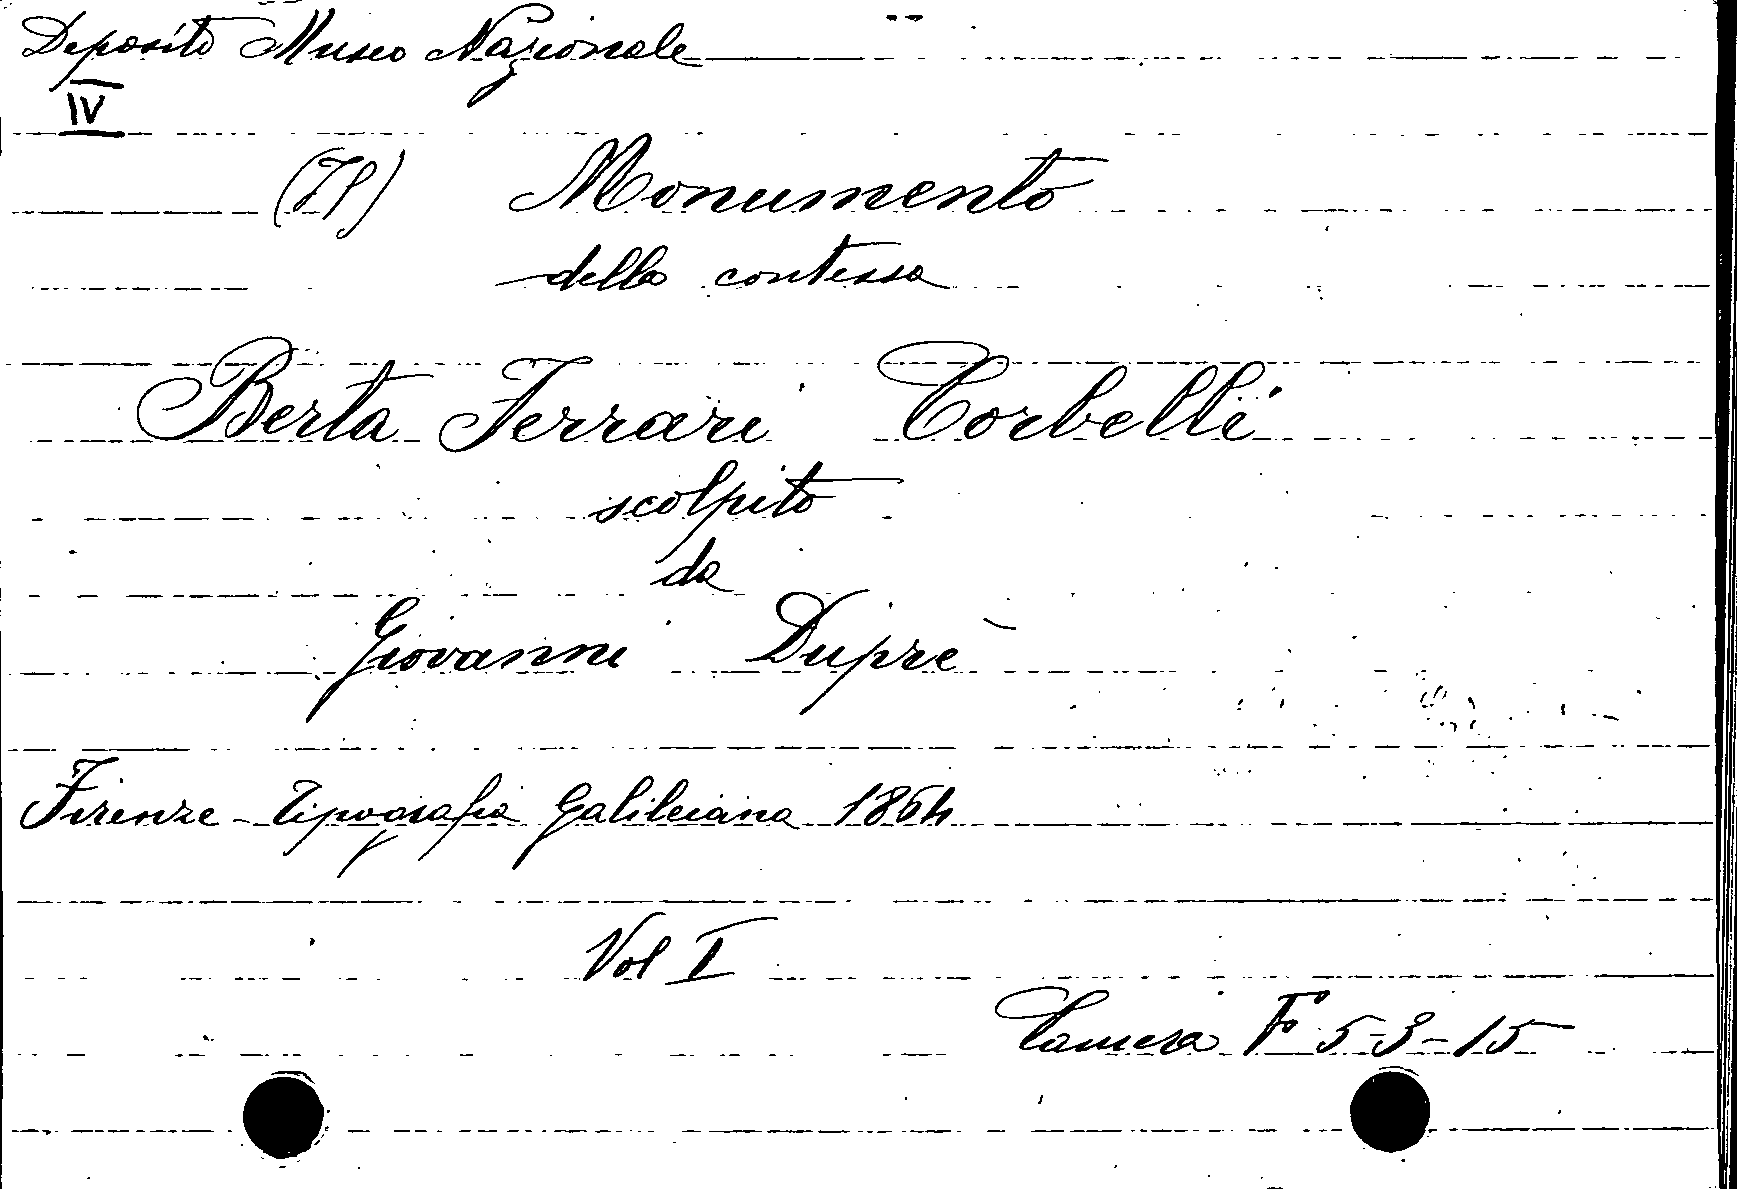 Deposito Museo Nazionale
IV
(78) Monumento
della contessa
Berta Ferrari Corbelli
scolpito
da
Giovanni Duprè
Firenze - Tipografia Galileiana 1864
Vol I
Camera F 5-3-15